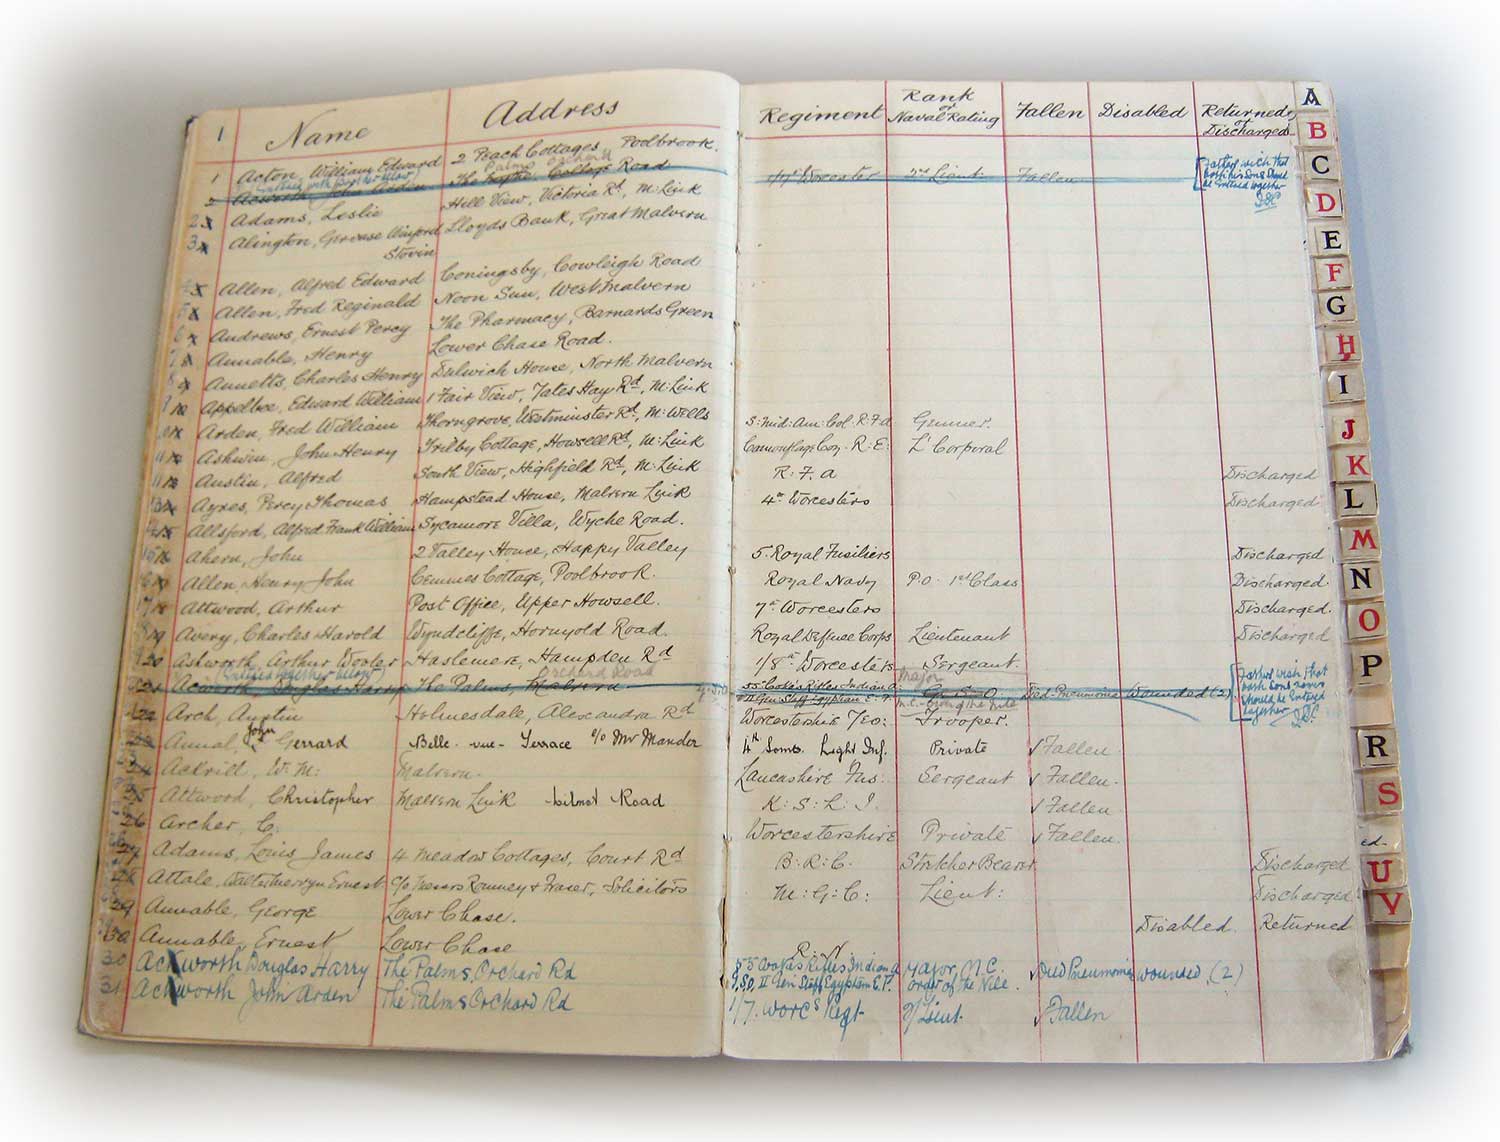 1 Name Address Regiment Rank or Naval Rating Fallen Disabled Returned or Discharged
1 Acton, William Edward 2 Peach Cottages Poolbrook.
(Entered with brother below) Palms Orchard
2 Acworth John Arden The College Road 1/7th Worcester 2nd Lieut Fallen [Father wish that both his Sons should be entered together
2 Adams, Leslie Hill View, Victoria Rd, M: Link
3 Alington, Gervase Winford Stovin Lloyds Bank, Great Malvern
Allen, Alfred Edward Coningsby, Cowleigh Road
5 Allen, Fred Reginald Noon Sun, West Malvern
6 Andrews, Ernest Percy The Pharmacy, Barnards Green
7 Annable, Henry Lower Chase Road.
8 Annetts, Charles Henry Dulwich House, North Malvern
9 Appelbee, Edward William 1 Fair View, Yates Hay Rd, M: Link
Arden, Fred William Thorngrove, Westminster Rd, M: Wells S: Mid: Am: Col: R.F.A Gunner.
Ashwin, John Henry Trilby Cottage, Howsell Rd, M: Link Camouflage Coy. R.E: L' Corporal
Austin, Alfred South View, Highfield Rd, M: Link R.F.A Discharged
Ayres, Percy Thomas Hampstead House, Malvern Link 4th Worcesters Discharged
Allsford, Alfred Frank William Sycamore Villa, Wyche Road.
Ahern, John 2 Valley House, Happy Valley 5. Royal Fusiliers Discharged
Allen, Henry John Cemmes Cottage, Poolbrook. Royal Navy P.O. 1st Class Discharged.
Attwood, Arthur Post Office, Upper Howsell. 7th Worcesters Discharged.
Avery, Charles Harold Wyndcliffe, Hornyold Road. Royal Defence Corps Lieutenant Discharged
20 Ashworth, Arthur Wooster Haslemere, Hampden Rd 1/8th Worcesters Sergeant
(Entered together below) Orchard Road Major
21 Acworth Douglas Harry The Palms, Malvern 55 Coke's Rifles Indian A: Died Pneumonia Wounded (2) [Father wish that both Sons names should be entered together
22 Arch, Austin Holmesdale, Alexandra Rd Worcestershire Yeo: Trooper.
23 Annal, John Gerrard Belle-vue-Terrace c/o Mr Mander 4th Soms. Light Inf. Private √ Fallen
24 Ackrill, W. M: Malvern. Lancashire Fus: Sergeant √ Fallen.
25 Attwood, Christopher Malvern Link Road K.S.L.I. √ Fallen
26 Archer, C. Worcestershire Private √ Fallen.
27 Adams, Louis James 4 Meadow Cottages, Court Rd B.R.C. Stretcher Bearer Discharged
28 Attale, Walter Mervyn Ernest c/o Messrs Romney & Fraser, Solicitors M:G:C: Lieut: Discharged.
29 Annable, George Lower Chase. Disabled. Returned
30 Annable, Ernest Lower Chase R.N.
30 Ackworth Douglas Harry The Palms, Orchard Rd 55 Cokes Rifles Indian A Major, M.C. √ Died Pneumonia wounded, (2)
G.S.O. II Gen Staff Egyptian E.F. order of the Nile.
31 Ackworth John Arden The Palms Orchard Rd 1/7. Worcs Regt 2/Lieut. √ Fallen
A
B
C
D
E
F
G
H
I
J
K
L
M
N
O
P
R
S
U
V